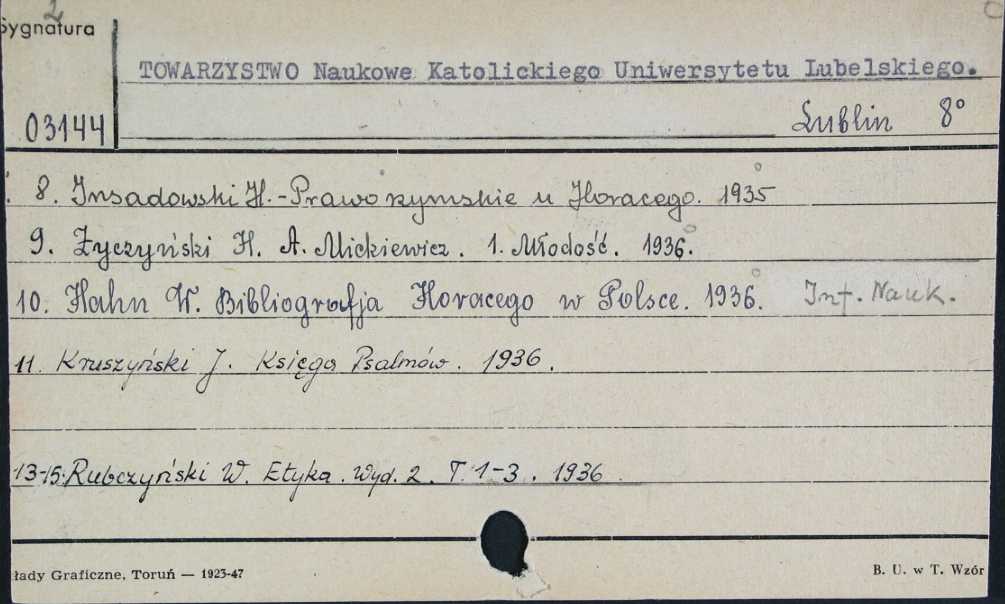 2
Sygnatura
TOWARZYSTWO Naukowe Katolickiego Uniwersytetu Lubelskiego.
03144
Lublin 8°
8. Insadowski H. - Prawo rzymskie u Horacego. 1935
9. Życzyński H. A. Mickiewicz. 1. Młodość. 1936.
10. Hahn W. Bibliografja Horacego w Polsce. 1936. Inf. Nauk.
11. Kruszyński J. Księga Psalmów. 1936.
13-15. Rubczyński W. Etyka. Wyd. 2. T. 1-3. 1936
łady Graficzne, Toruń — 1923-47
B. U. w T. Wzór